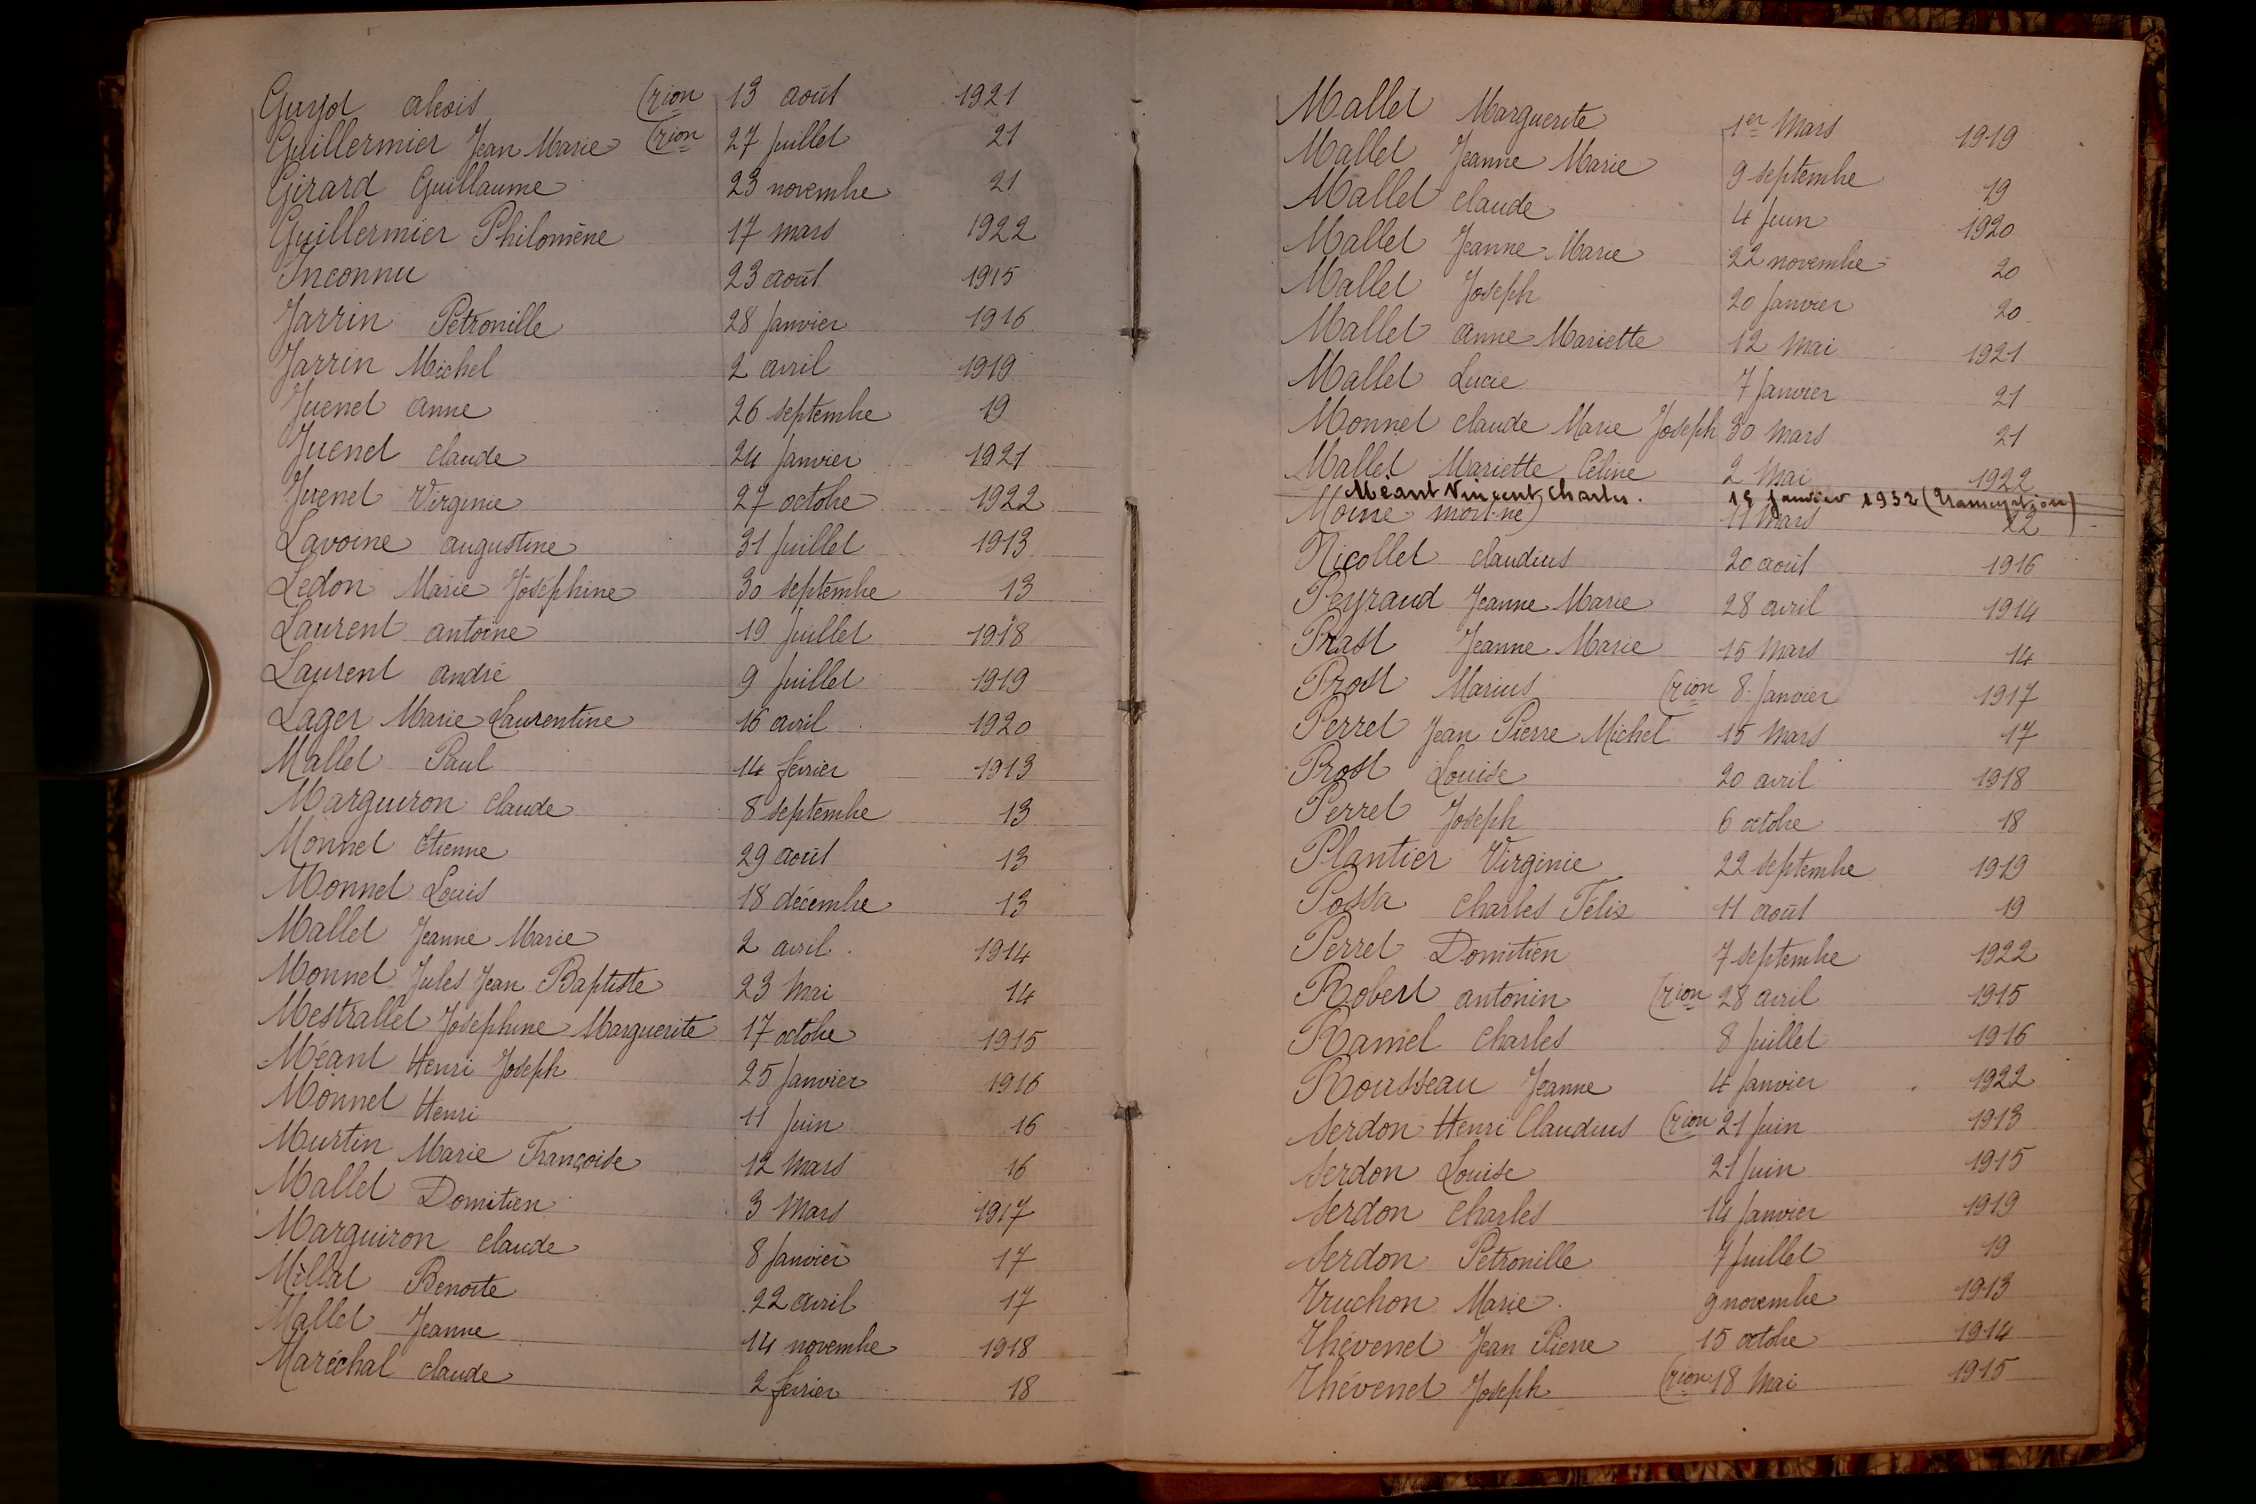 Guyot alexis (Trion 13 août 1921
Guillermier Jean Marie (Trion 27 Juillet 21
Girard Guillaume 23 novembre 21
Guillermier Philomène 17 mars 1922
Inconnu 23 août 1915
Jarrin Pétronille 28 Janvier 1916
Jarrin Michel 2 avril 1919
Juenet anne 26 septembre 19
Juenet claude 24 Janvier 1921
Juenet Virginie 27 octobre 1922
Lavoine augustine 31 Juillet 1913
Ledon Marie Joséphine 30 septembre 13
Laurent antoine 19 Juillet 1918
Laurent andré 9 Juillet 1919
Lager Marie Laurentine 16 avril 1920
Mallet Paul 14 février 1913
Marguiron claude 8 septembre 13
Monnet Etienne 29 août 13
Monnet Louis 18 décembre 13
Mallet Jeanne Marie 2 avril 1914
Monnet Jules Jean Baptiste 23 Mai 14
Mestrallet Joséphine Marguerite 17 octobre 1915
Méant Henri Joseph 25 Janvier 1916
Monnet Henri 11 Juin 16
Murtin Marie Françoise 12 Mars 16
Mallet Domitien 3 Mars 1917
Marguiron claude 8 Janvier 17
Millat Benoite 22 avril 17
Mallet Jeanne 14 novembre 1918
Maréchal claude 2 février 18
Mallet Marguerite 1er Mars 1919
Mallet Jeanne Marie 9 septembre 19
Mallet claude 4 Juin 1920
Mallet Jeanne Marie 22 novembre 20
Mallet Joseph 20 Janvier 20
Mallet anne Mariette 12 Mai 1921
Mallet Lucie 7 Janvier 21
Monnet claude Marie Joseph 30 Mars 21
Mallet Mariette Céline 2 Mai 1922
Méant Vincent Charles. 15 Janvier 1932 (Transcription)
Moine mort-né 11 Mars 22
Nicollet claudius 20 août 1916
Peyraud Jeanne Marie 28 avril 1914
Prast Jeanne Marie 15 Mars 14
Prost Marius (Trion 8 Janvier 1917
Perret Jean Pierre Michel 15 Mars 17
Prost Louise 20 avril 1918
Perret Joseph 6 octobre 18
Plantier Virginie 22 septembre 1919
Possa Charles Félix 11 août 19
Perret Domitien 7 septembre 1922
Robert antonin (Trion 28 avril 1915
Ramel Charles 8 Juillet 1916
Rousseau Jeanne 4 Janvier 1922
Serdon Henri Claudius (Trion 21 Juin 1913
Serdon Louise 21 Juin 1915
Serdon Charles 14 Janvier 1919
Serdon Pétronille 7 Juillet 19
Truchon Marie 9 novembre 1913
Thévenet Jean Pierre 15 octobre 1914
Thévenet Joseph (Trion 18 Mai 1915